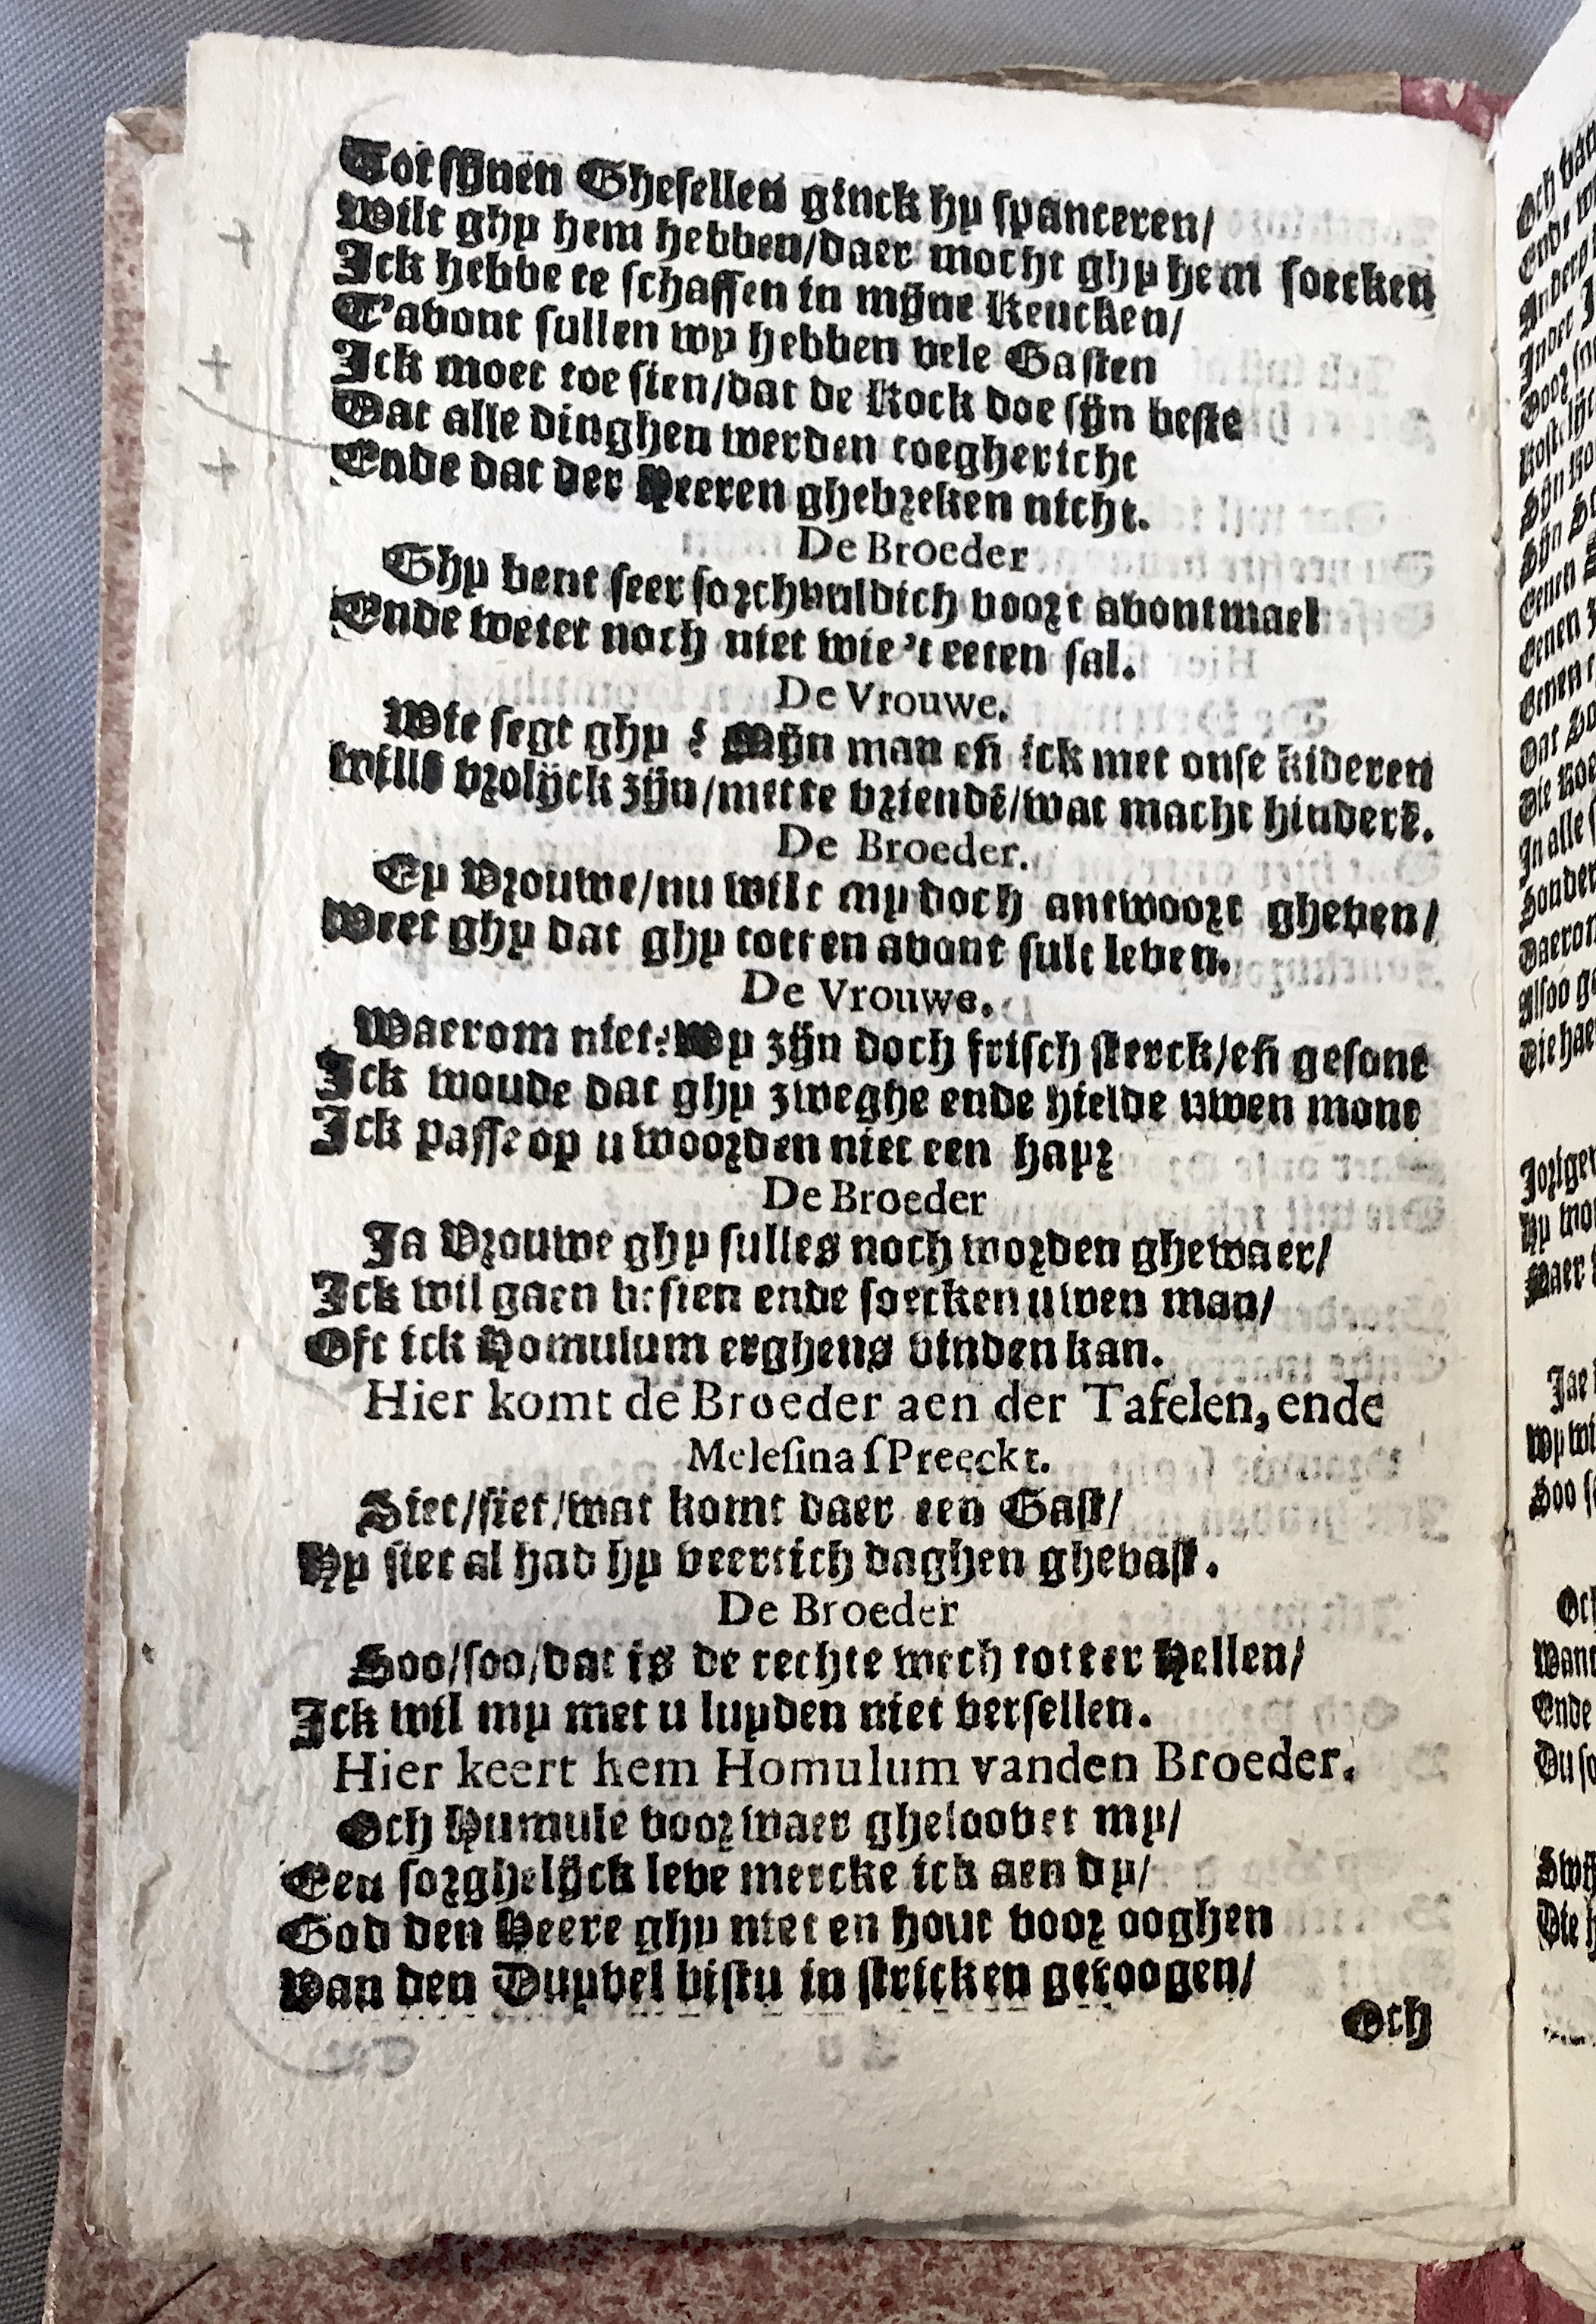 Tot sijnen Ghesellen ginck hy spanceren/
Wilt ghy hem hebben/daer mocht ghy hem soecken
Ick hebbe te schaffen in mijne Keucken/
T'avont sullen wy hebben vele Gasten
Ick moet toe sien/dat de Kock doe sijn beste
Dat alle dinghen werden toeghericht
Ende dat der Heeren ghebreken nicht.
De Broeder
Ghy bent seer sorchvuldich voort avontmael
Ende wetet noch niet wie 't eeten sal.
De Vrouwe.
Wie segt ghy ? Mijn man eñ ick met onse kideren
wills vrolijck zijn/mette vriendē/wat macht hinderē.
De Broeder.
Ey Vrouwe/nu wilt my doch antwoort gheven/
Weet ghy dat ghy totten avont sult leven.
De Vrouwe.
Waerom niet? Wy zijn doch frisch sterck/eñ gesont
Ick woude dat ghy zweghe ende hielde uwen mont
Ick passe op u woorden niet een hayr
De Broeder
Ja Vrouwe ghy sulles noch worden ghewaer/
Ick wil gaen besien ende soecken uwen man/
Oft ick Homulum erghens vinden kan.
Hier komt de Broeder aen der Tafelen, ende
Melesina sPreeckt.
Siet/siet/wat komt daer een Gast/
Hy siet al had hy veertich daghen ghevast.
De Broeder
Soo/soo/dat is de rechte wech totter Hellen/
Ick wil my met u luyden niet versellen.
Hier keert hem Homulum vanden Broeder.
Och Humule voorwaer gheloovet my/
Een sorghelijck leve mercke ick aen dy/
God den Heere ghy niet en hout voor ooghen
Van den Duyvel bistu in stricken getoogen/
Och